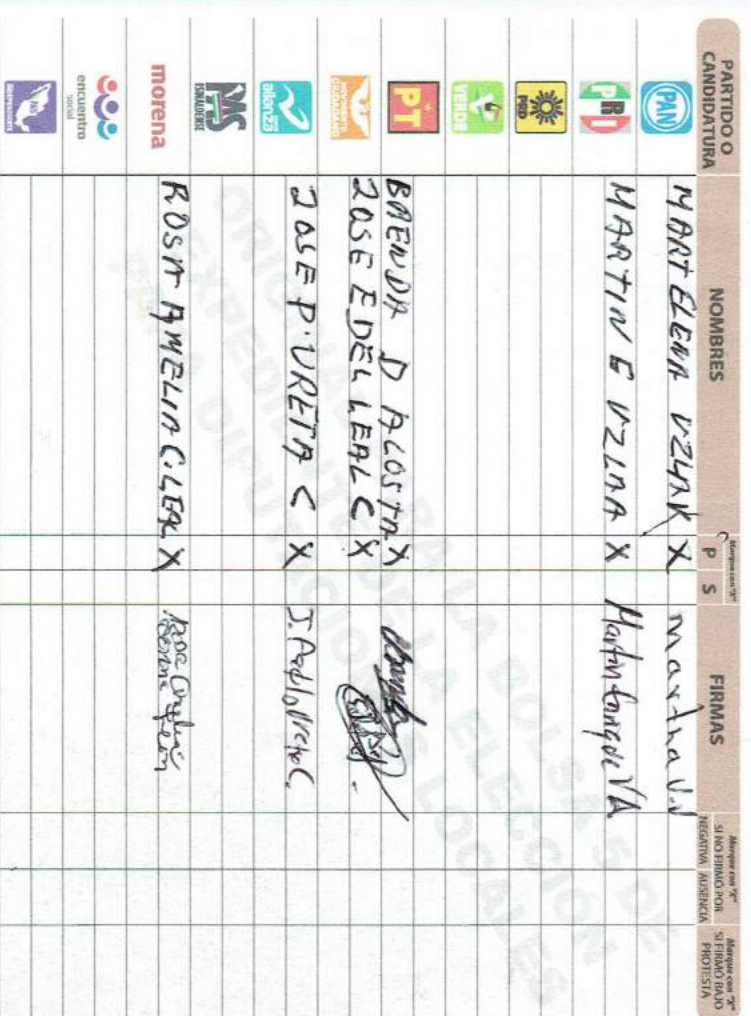 PARTIDO O
CANDIDATURA
NOMBRES
Marque con "X"
P S
FIRMAS
Marque con "X"
SI NO FIRMÓ POR
NEGATIVA AUSENCIA
Marque con "X"
SI FIRMÓ BAJO
PROTESTA
PAN MART ELENA VZLAK X Martha V.V
PRI MARTIN E VZLAA X Martin Enrique VA
PRD
VERDE
PT BRENDA D ACOSTA X
MOVIMIENTO CIUDADANO JOSE EDEL LEAL C X
alianza JOSE P. URETA C X J. Pedro Ureta C.
PAS
SINALOENSE
morena ROSA AMELIA C. LEAL X
encuentro
social
INDEPENDIENTE
ORIGINAL PARA LA BOLSA 5 DE
EXPEDIENTE DE LA ELECCIÓN
PARA DIPUTACIONES LOCALES